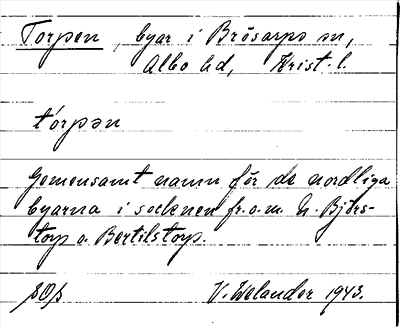 Torpen, byar i Brösarps sn,
Albo hd, Krist. l.
tórpən
Gemensamt namn för de nordliga
byarna i socknen fr.o.m. N. Björs-
torp o. Bertilstorp.
V. Welander 1943.